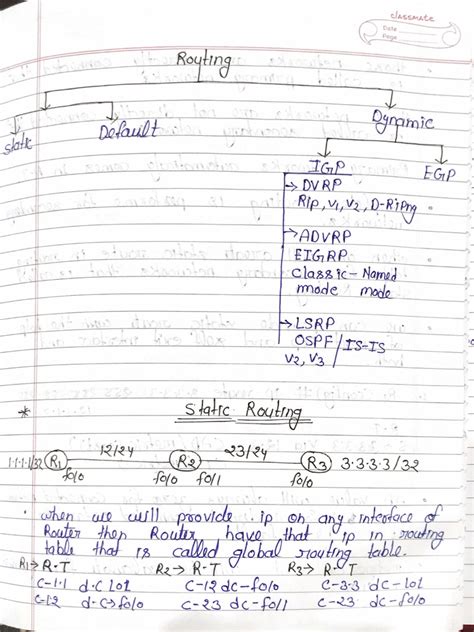 classmate
Date
Page
Routing
Static
Default
Dynamic
IGP
EGP
→ DVRP
Rip, v1, v2, D-Ripng
→ ADVRP
EIGRP
Classic-Named
mode mode
→ LSRP
OSPF / IS-IS
v2, v3
* Static Routing
1.1.1.1/32 R1 12/24 R2 23/24 R3 3.3.3.3/32
fo/0 fo/0 fo/1 fo/0
• when we will provide ip on any interface of
Router then Router have that ip in routing
table that is called global routing table.
R1→ R.T R2→ R.T R3→ R.T
C-1.1 d.C lo1 C-12 dc-fo/0 C-3.3 dc-lo1
C-12 d.c→fo/0 C-23 dc-fo/1 C-23 dc-fo/0